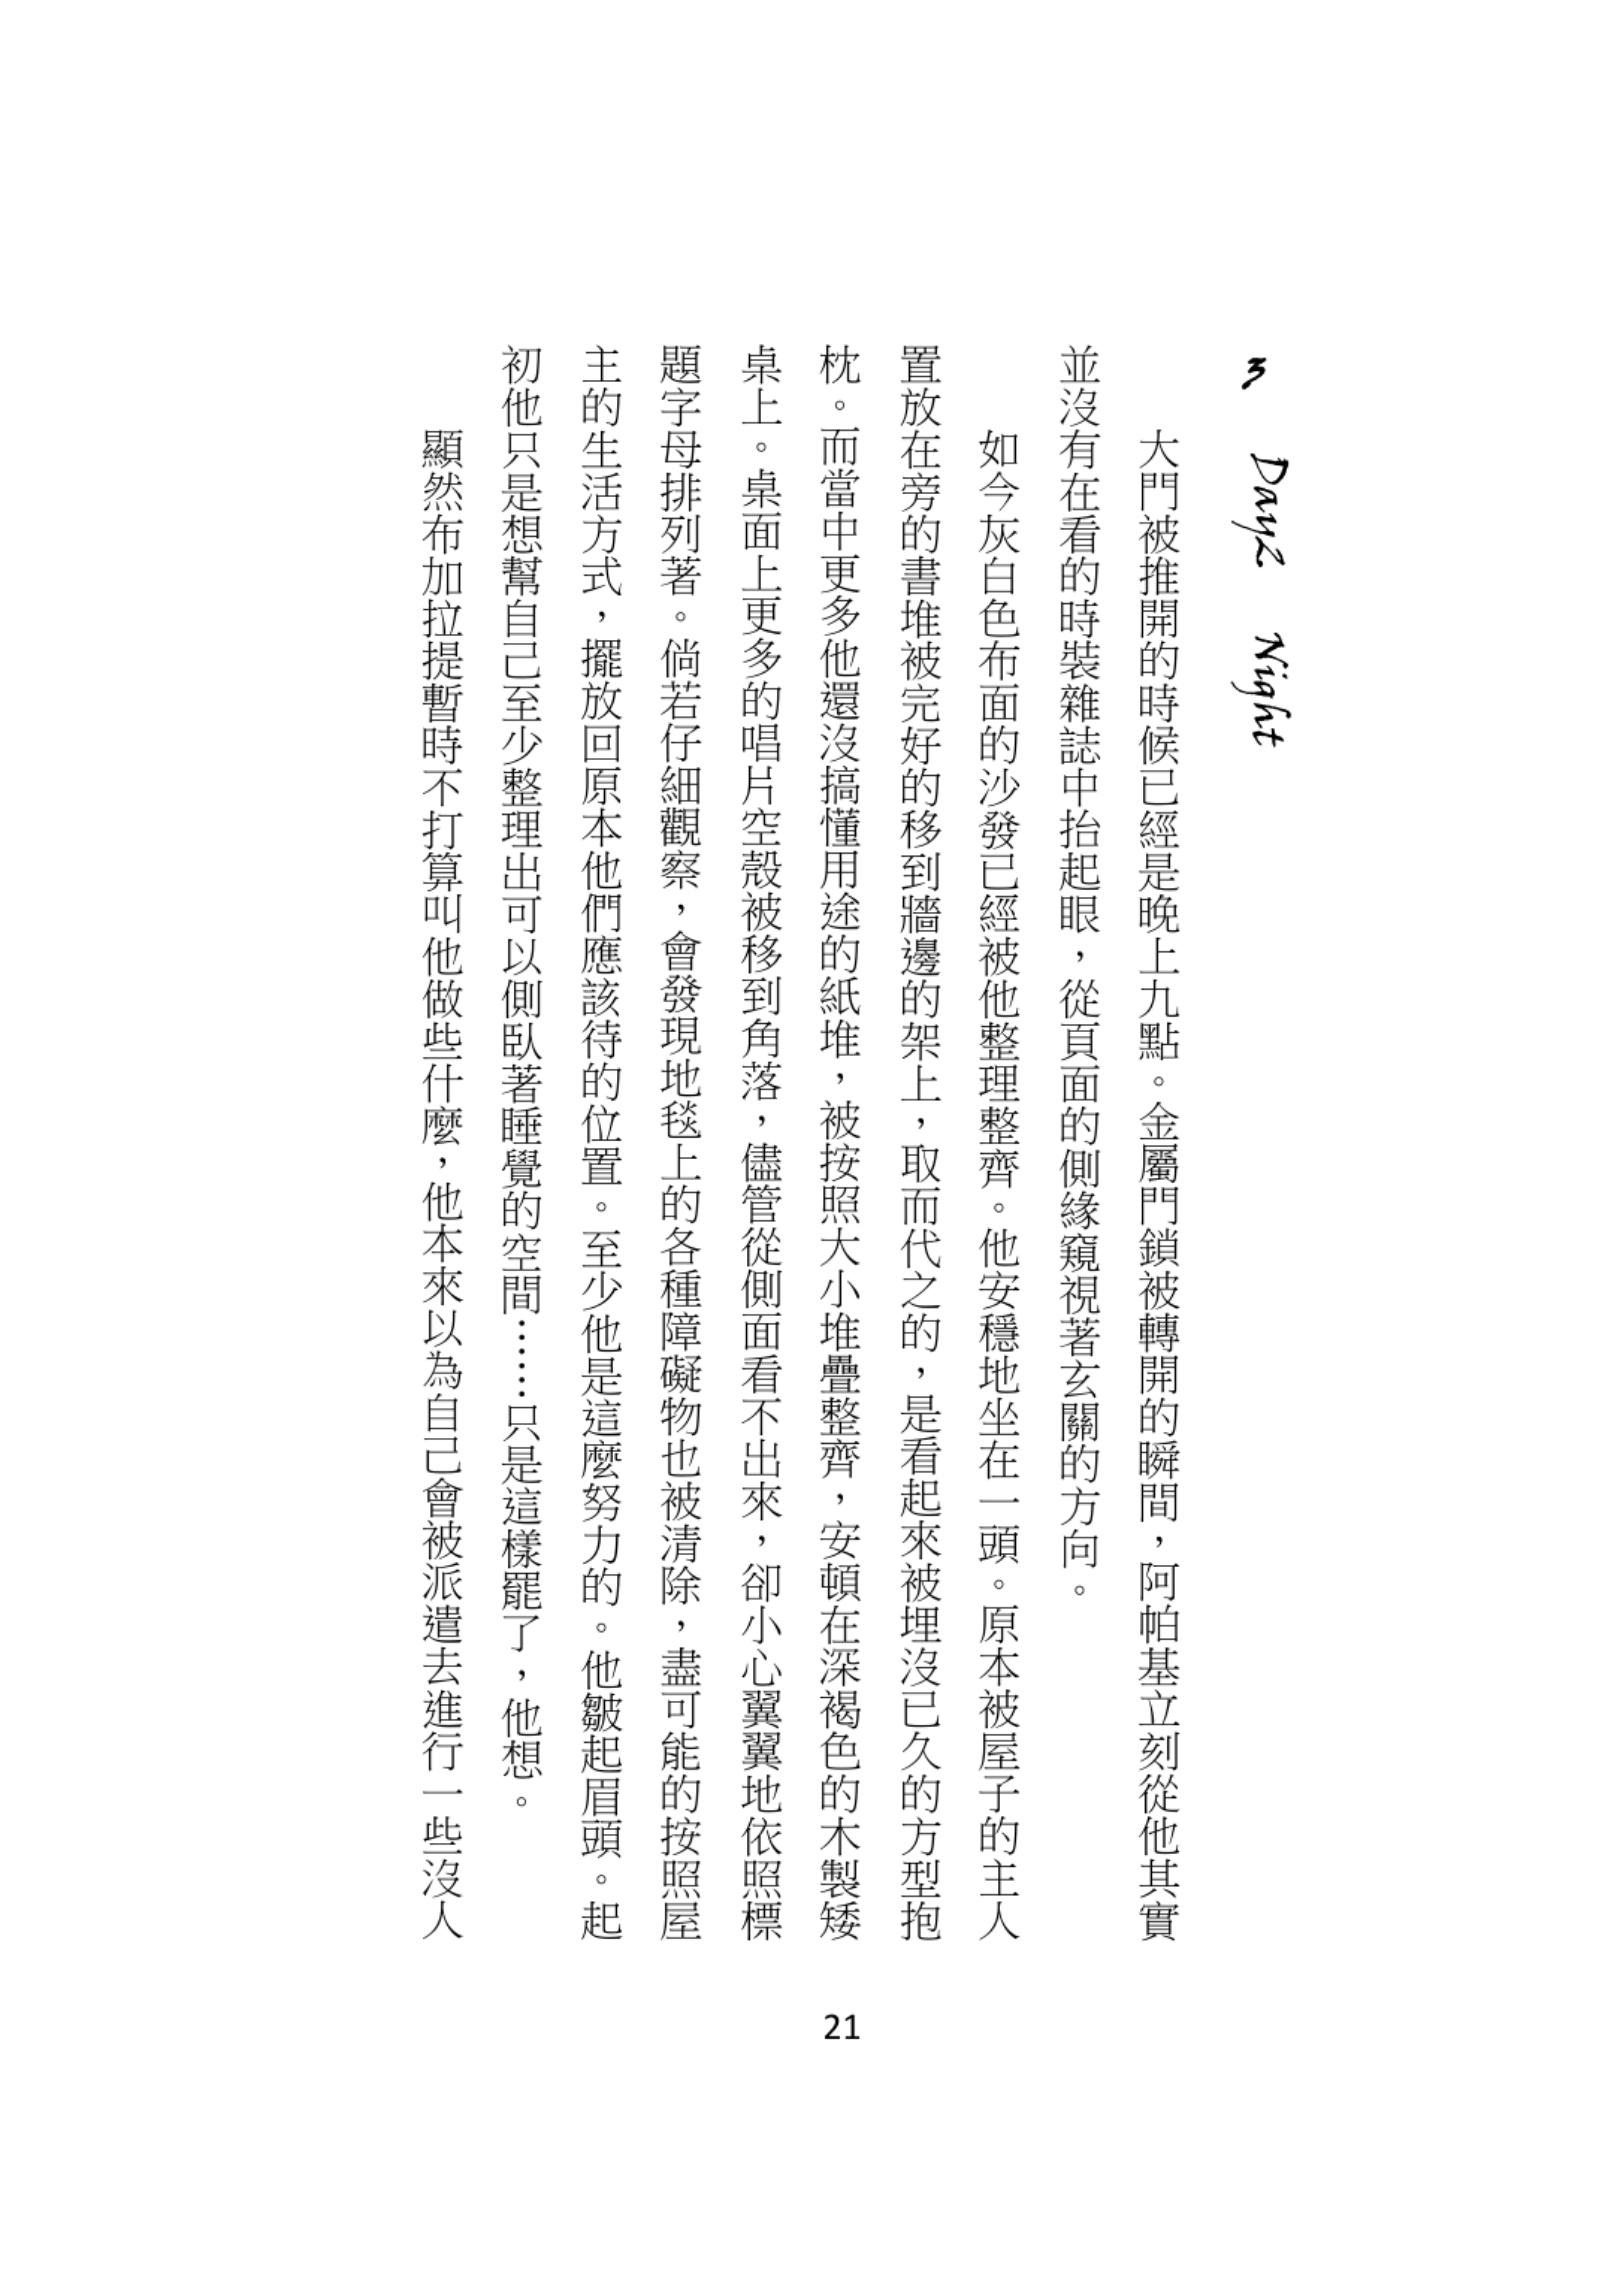 3 Day2 Night
大門被推開的時候已經是晚上九點。金屬門鎖被轉開的瞬間，阿帕基立刻從他其實
並沒有在看的時裝雜誌中抬起眼，從頁面的側緣窺視著玄關的方向。
如今灰白色布面的沙發已經被他整理整齊。他安穩地坐在一頭。原本被屋子的主人
置放在旁的書堆被完好的移到牆邊的架上，取而代之的，是看起來被埋沒已久的方型抱
枕。而當中更多他還沒搞懂用途的紙堆，被按照大小堆疊整齊，安頓在深褐色的木製矮
桌上。桌面上更多的唱片空殼被移到角落，儘管從側面看不出來，卻小心翼翼地依照標
題字母排列著。倘若仔細觀察，會發現地毯上的各種障礙物也被清除，盡可能的按照屋
主的生活方式，擺放回原本他們應該待的位置。至少他是這麼努力的。他皺起眉頭。起
初他只是想幫自己至少整理出可以側臥著睡覺的空間……只是這樣罷了，他想。
顯然布加拉提暫時不打算叫他做些什麼，他本來以為自己會被派遣去進行一些沒人
21